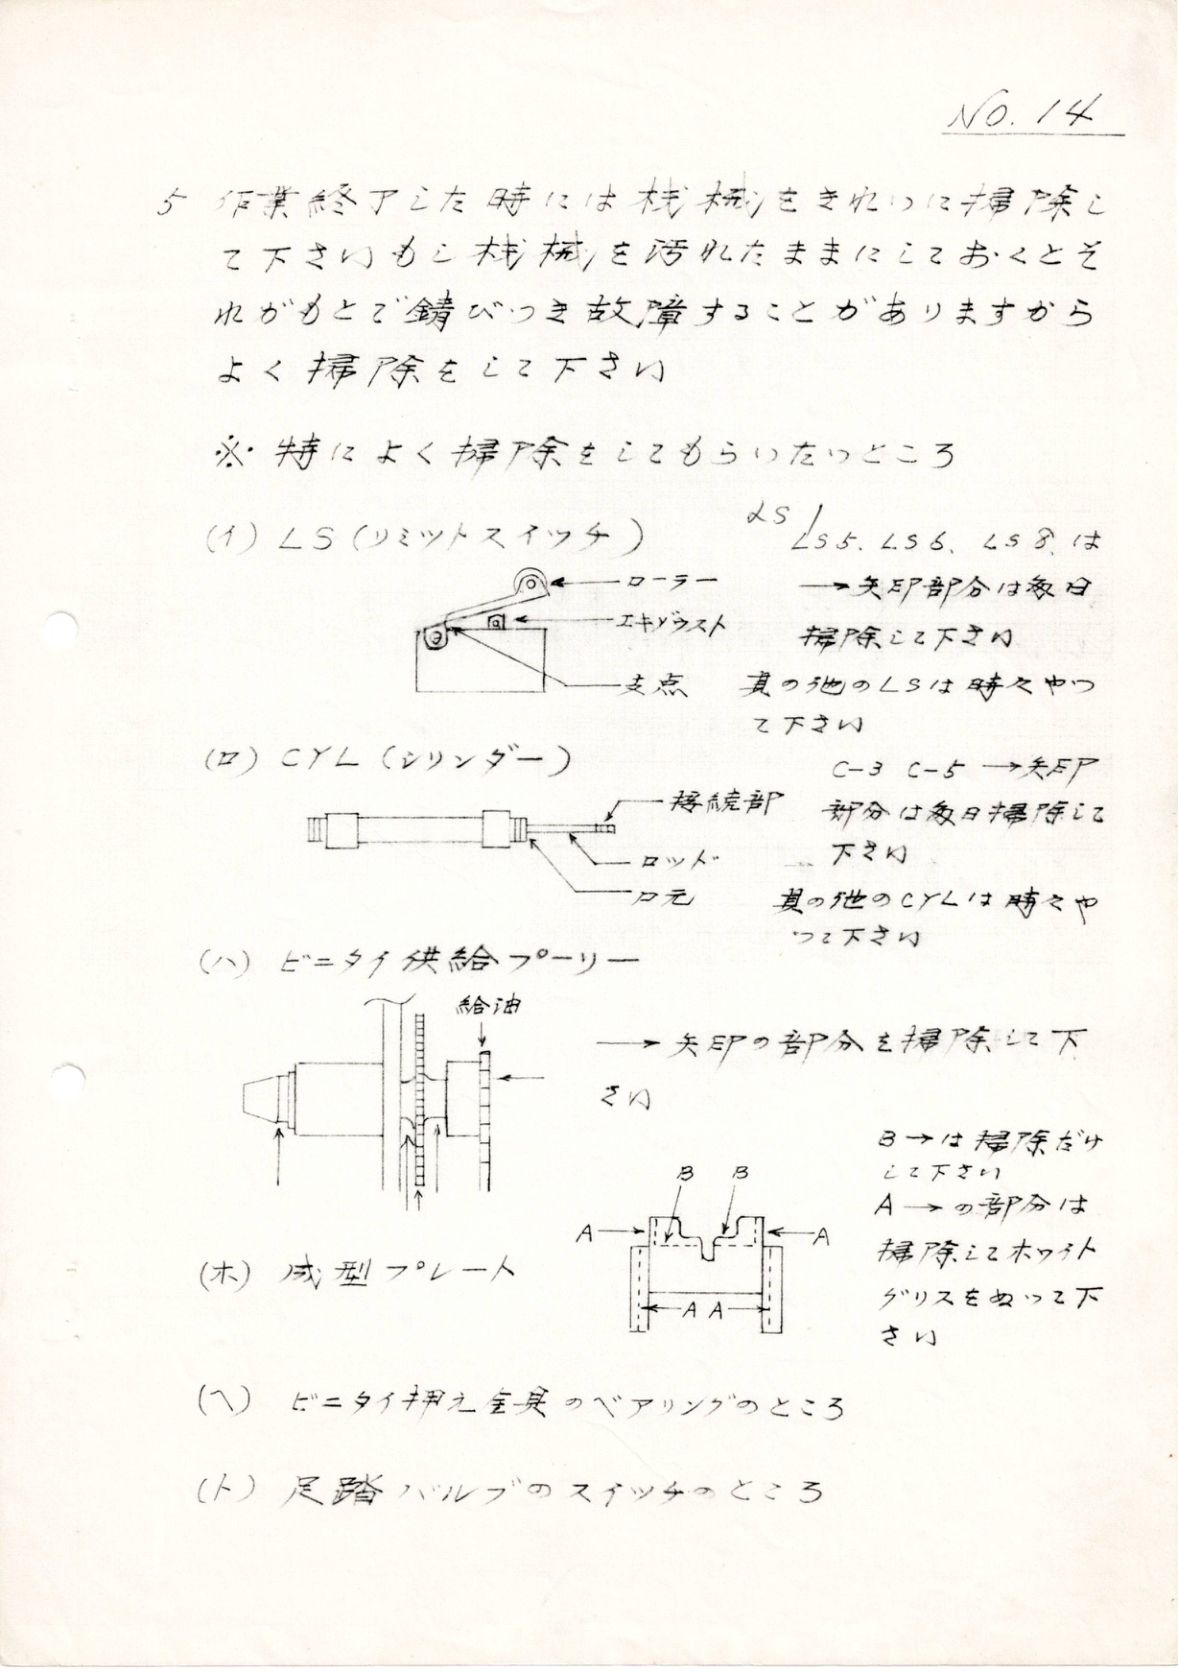 NO. 14
5 作業終了した時には機械をきれいに掃除し
て下さいもし機械を汚れたままにしておくとそ
れがもとで錆びつき故障することがありますから
よく掃除をして下さい
※ 特によく掃除をしてもらいたいところ
(イ) LS(リミットスイッチ)
ローラー
エキゾウスト
支点
LS 1
LS5. LS6. LS8. は
→矢印部分は毎日
掃除して下さい
其の他のLSは時々やっ
て下さい
(ロ) CYL(シリンダー)
接続部
ロッド
口元
C-3 C-5 →矢印
部分は毎日掃除して
下さい
其の他のCYLは時々や
って下さい
(ハ) ビニタイ供給プーリー
給油
→矢印の部分を掃除して下
さい
(ホ) 成型プレート
B B
A A
A A
B→は掃除だけ
して下さい
A→の部分は
掃除してホワイト
グリスをぬって下
さい
(ヘ) ビニタイ押え金具のベアリングのところ
(ト) 足踏バルブのスイッチのところ